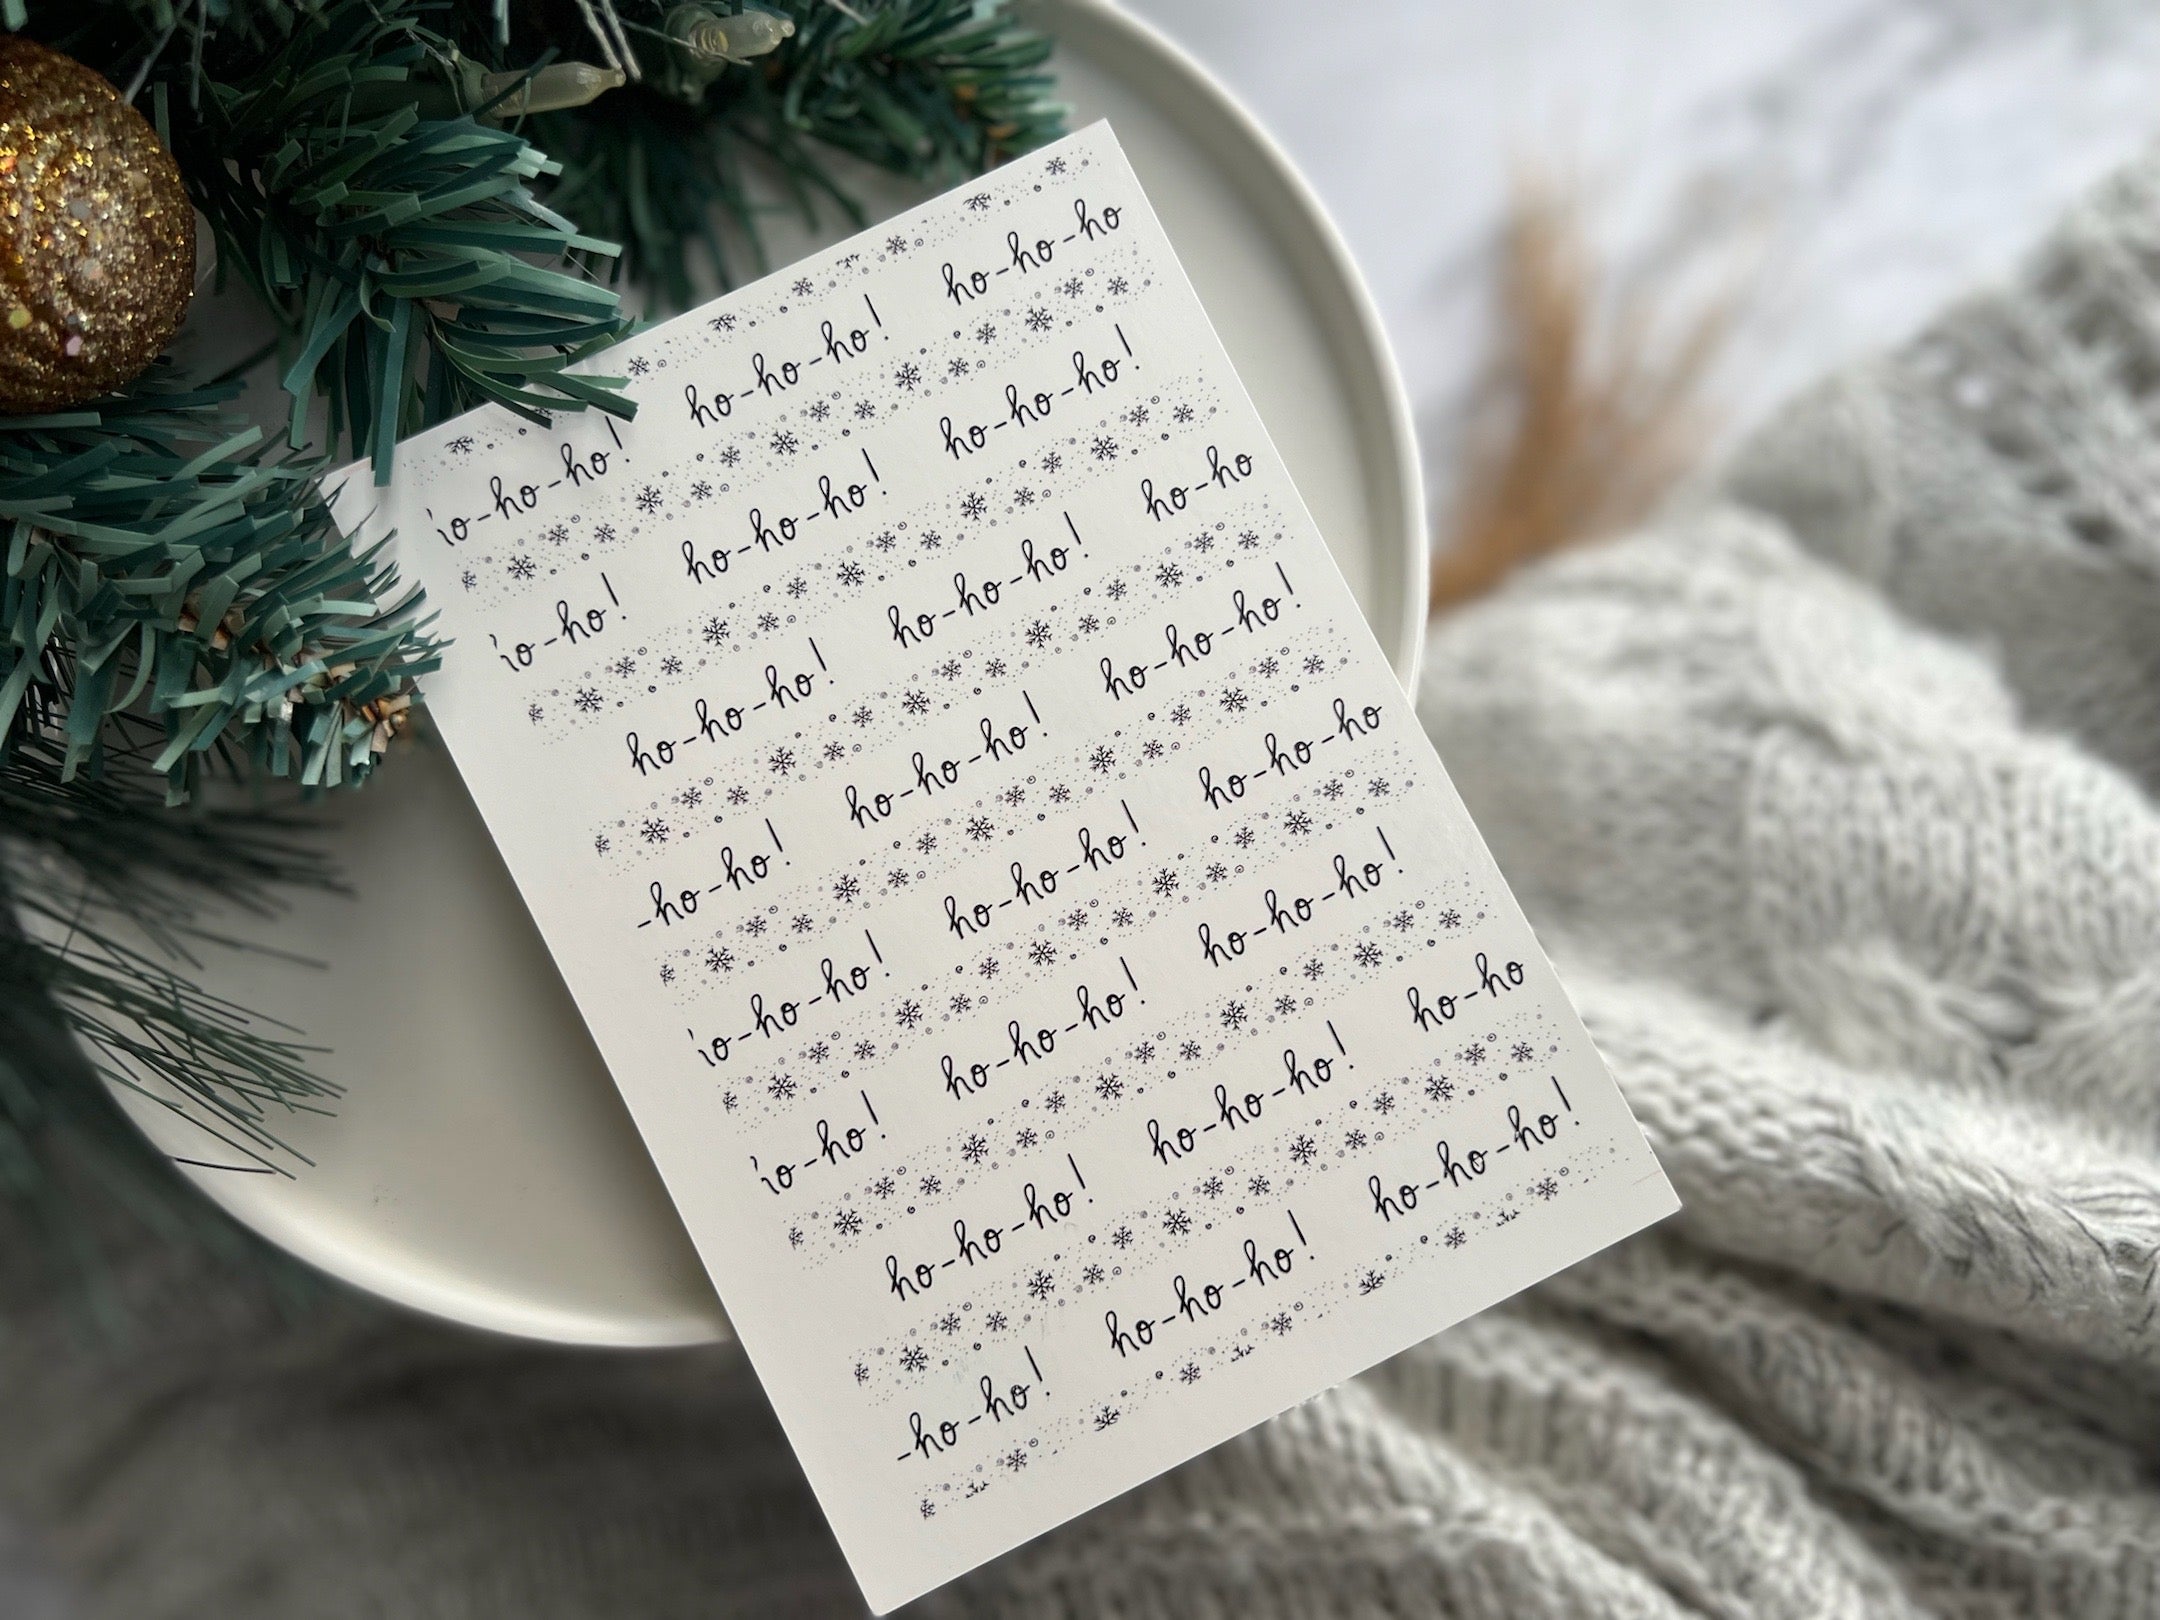 ho-ho-ho! ho-ho-ho! ho-ho-ho
ho-ho! ho-ho-ho! ho-ho-ho!
ho-ho-ho! ho-ho-ho! ho-ho
-ho-ho! ho-ho-ho! ho-ho-ho!
ho-ho-ho! ho-ho-ho! ho-ho-ho
ho-ho! ho-ho-ho! ho-ho-ho!
ho-ho-ho! ho-ho-ho! ho-ho
-ho-ho! ho-ho-ho! ho-ho-ho!